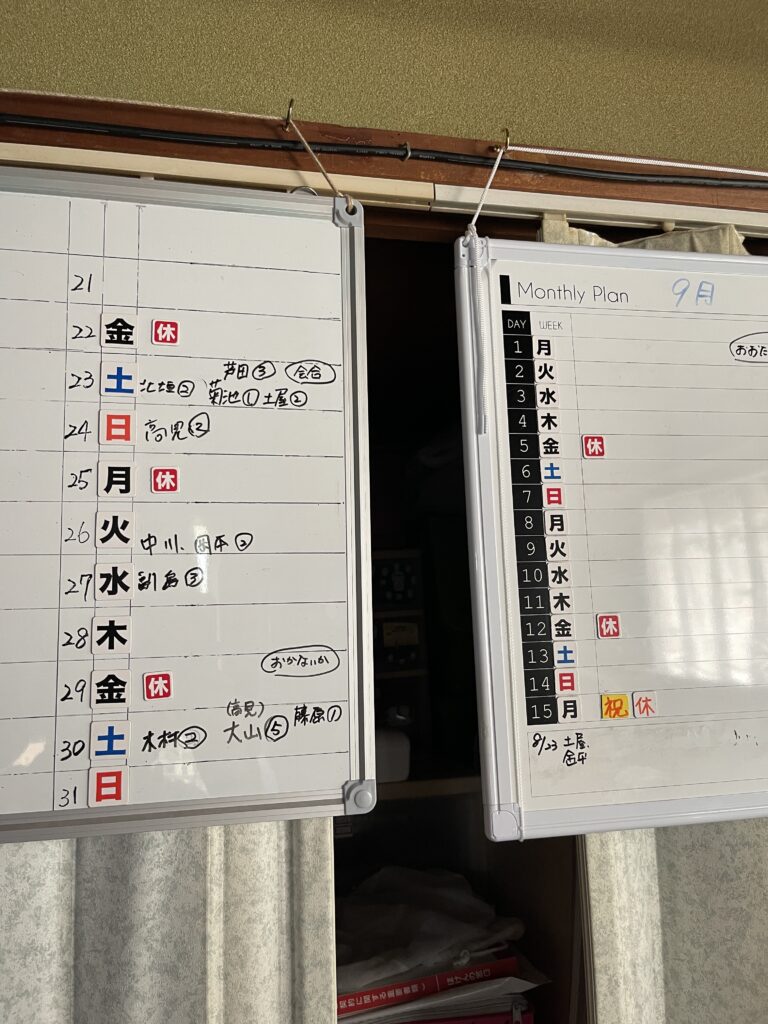 21
22 金 休
芦田③ 会合
23 土 北垣② 菊池① 土屋②
24 日 高児②
25 月 休
26 火 中川、 岡平②
27 水 副島③
28 木
おかないか
29 金 休
(高見) 藤原①
30 土 木村② 大山⑤
31 日
Monthly Plan 9月
DAY WEEK
1 月
2 火
3 水
4 木
5 金 休
6 土
7 日
8 月
9 火
10 水
11 木
12 金 休
13 土
14 日
15 月 祝 休
8/23 土屋、